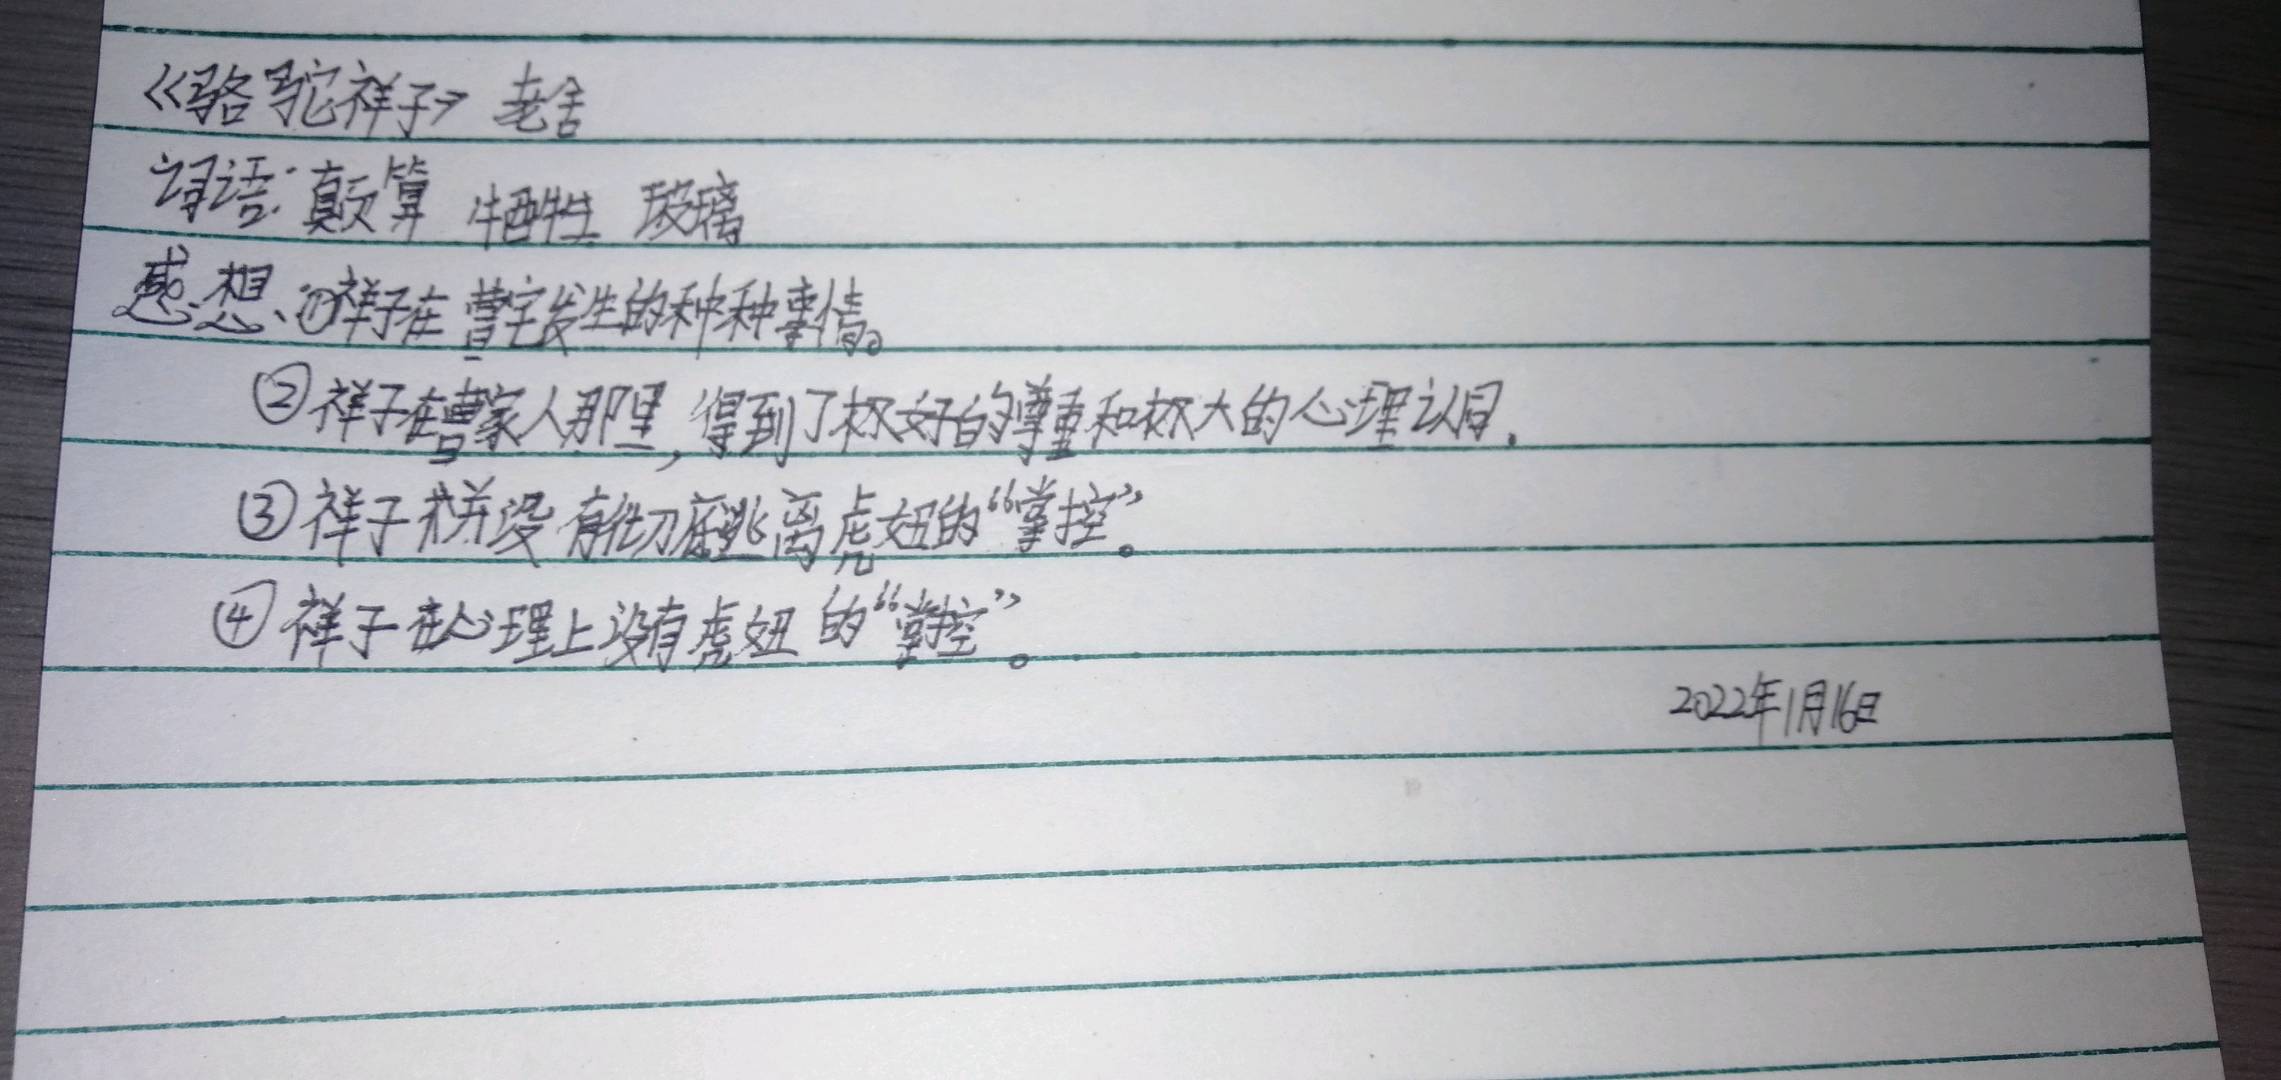 《骆驼祥子》 老舍
词语：颠算 牺牲 玻璃
感想：①祥子在曹宅发生的种种事情。
②祥子在曹家人那里，得到了极好的尊重和极大的心理认同.
③祥子并没有彻底逃离虎妞的“掌控”。
④祥子在心理上没有虎妞的“掌控”。
2022年1月16日